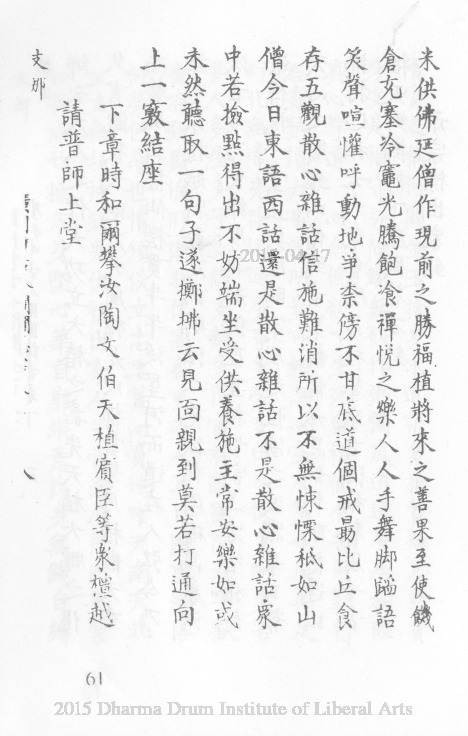 米供佛廷僧作現前之勝福植將來之善果至使饑
倉充塞冷竈光騰飽飡禪悅之樂人人手舞脚蹈語
笑聲喧懽呼動地爭柰傍不甘底道個戒最比丘食
存五觀散心雜話信施難消所以不無悚慄秪如山
僧今日東語西話還是散心雜話不是散心雜話眾
中若撿點得出不妨端坐受供養施主常安樂如或
未然聽取一句子遂擲拂云見面親到莫若打通向
上一竅結座
下章時和爾攀汝陶文伯天植賓臣等眾檀越
請普師上堂
支那
八
61
2015-04-17
2015 Dharma Drum Institute of Liberal Arts